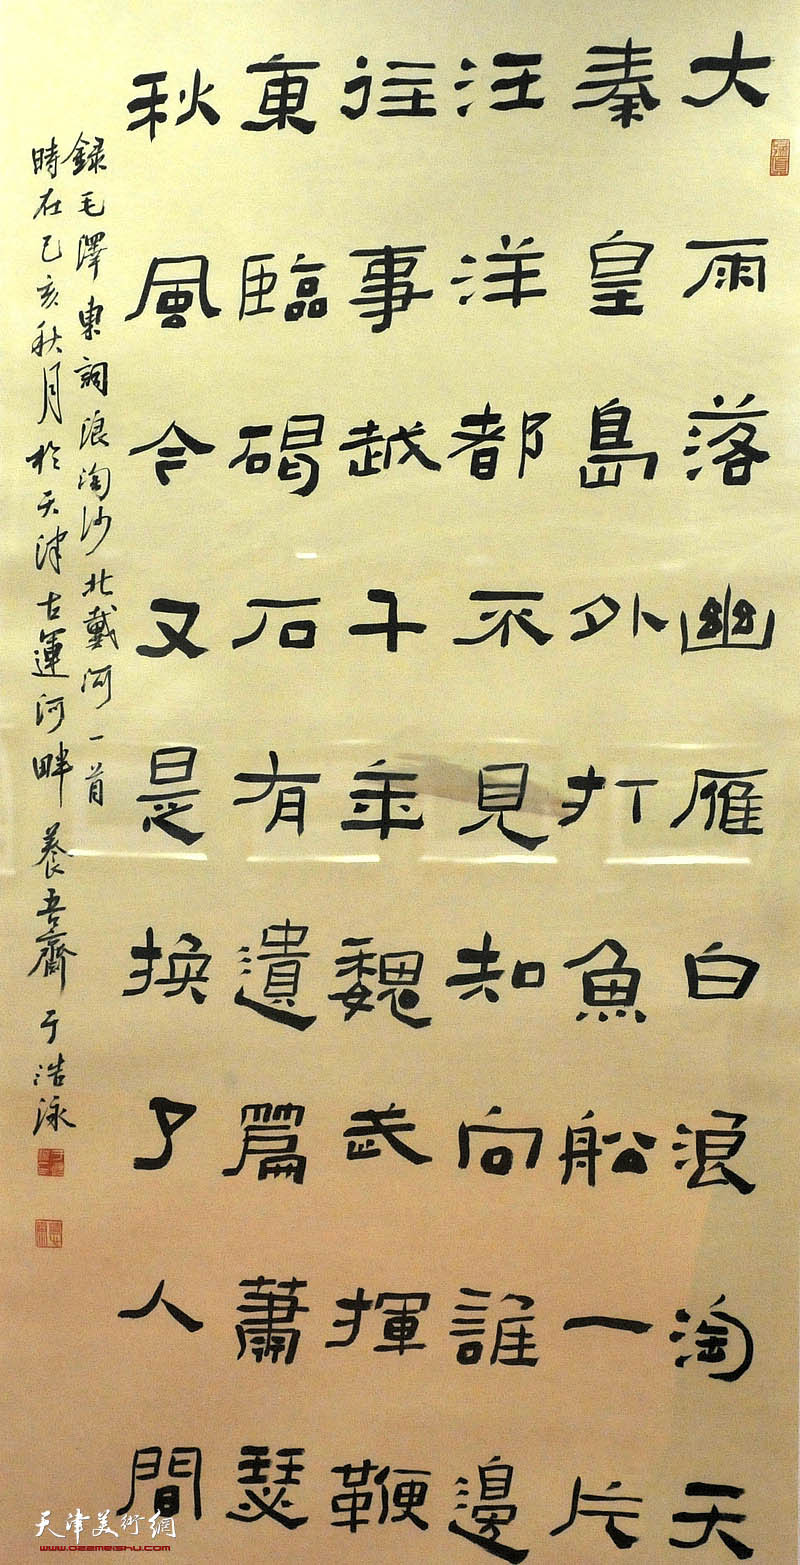 大雨落幽雁白浪淘天
秦皇島外打魚船一片
汪洋都不見知向誰邊
往事越千年魏武揮鞭
東臨碣石有遺篇蕭瑟
秋風今又是換了人間
錄毛澤東詞浪淘沙北戴河一首
時在己亥秋月於天津古運河畔 養吾齋 于浩泳
天津美術網
www.022meishu.com